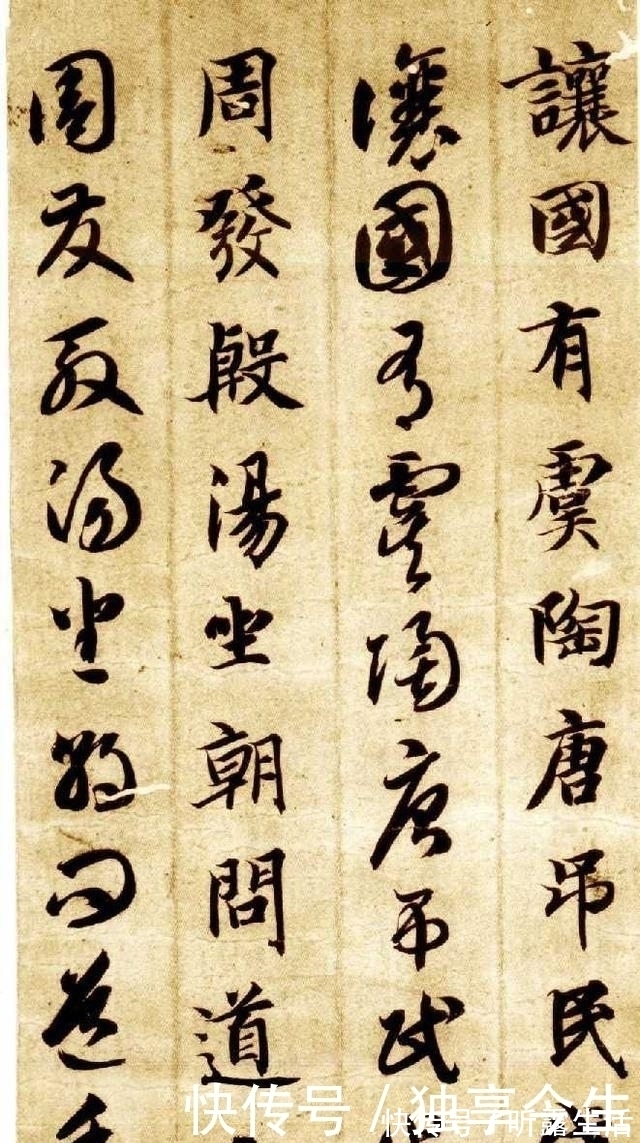 讓國有虞陶唐吊民
讓國有虞陶唐吊民
周發殷湯坐朝問道
周發殷湯坐朝問道
快传号 / 独享今生
快传号 / 听露生活